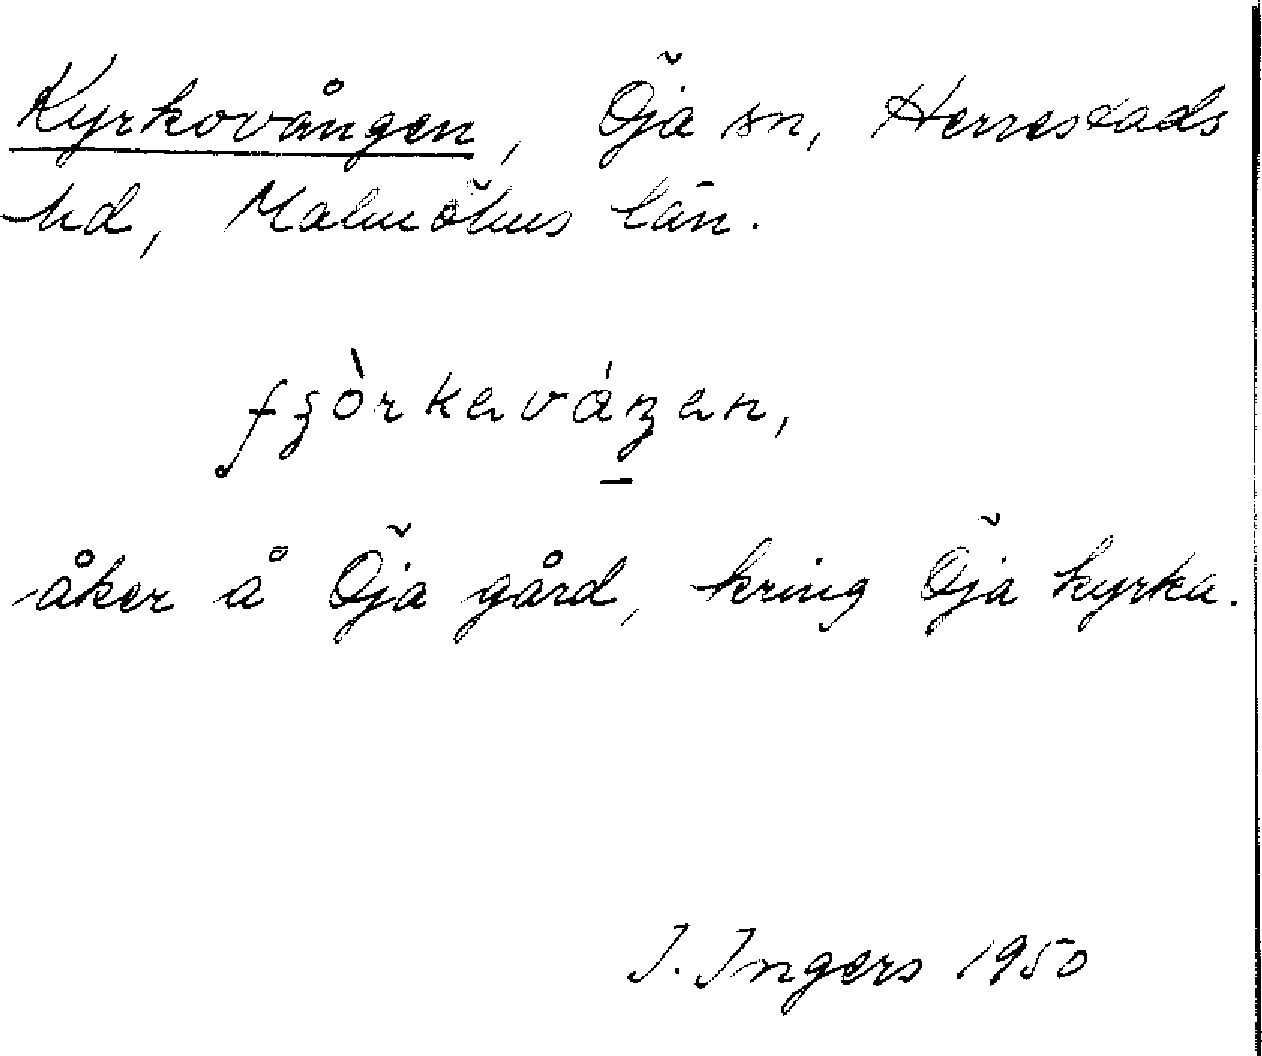 Kyrkovången, Öja sn, Herrestads
hd, Malmöhus län.
åker å Öja gård, kring Öja kyrka.
I. Ingers 1950